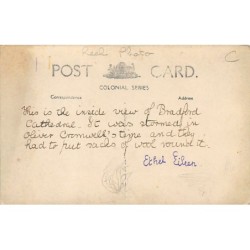 Real Photo
C
POST CARD.
COLONIAL SERIES
Correspondence
Address
This is the inside view of Bradford
Cathedral. It was stormed in
Oliver Cromwell's time and they
had to put sacks of wool round it.
Ethel Eileen